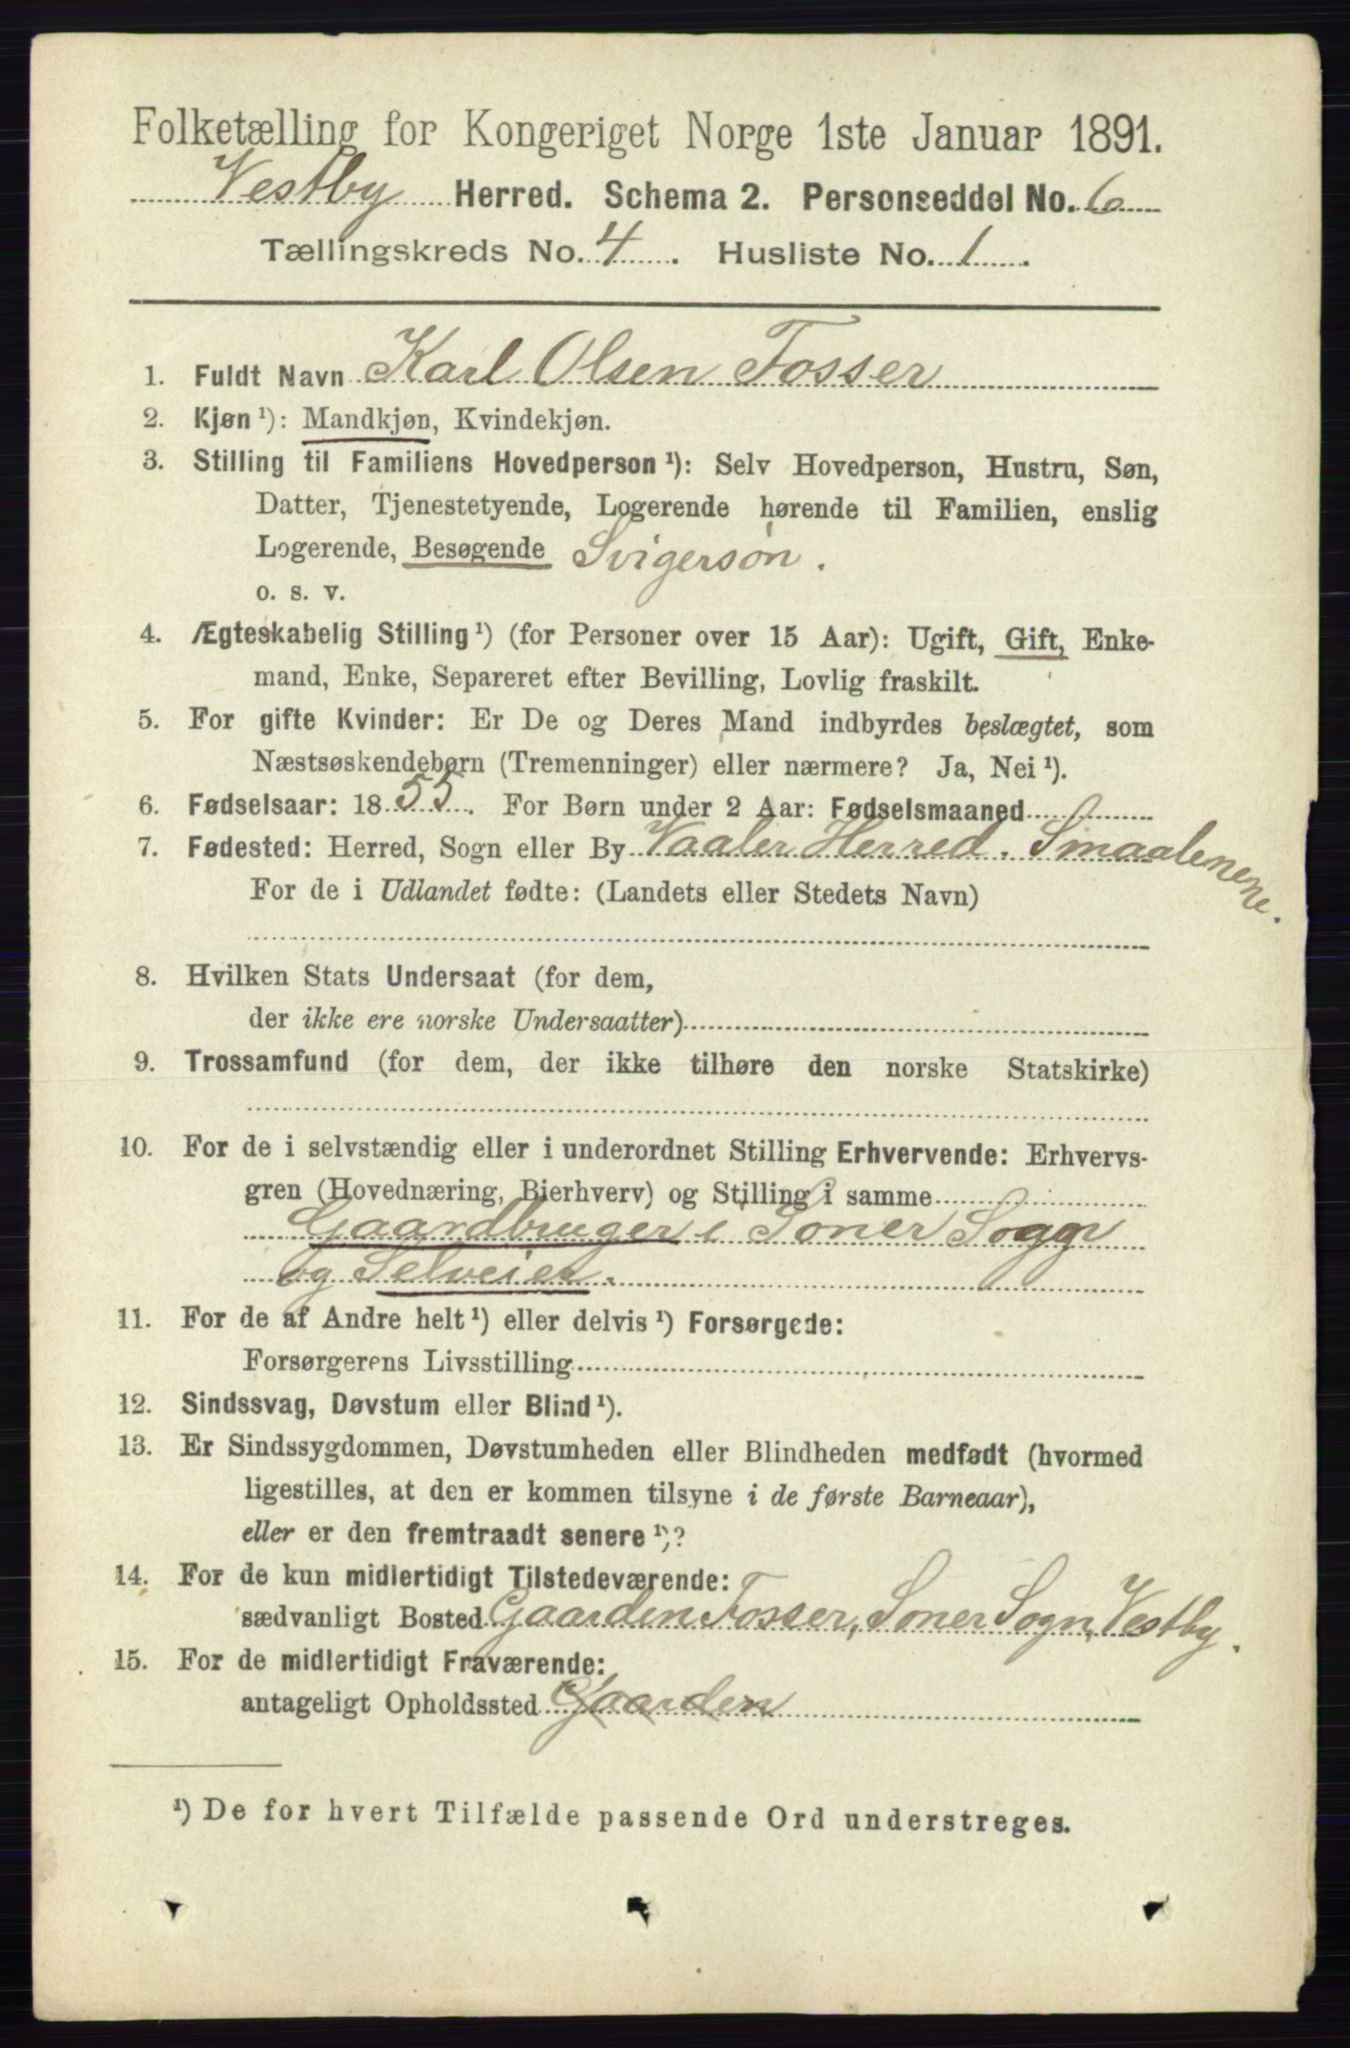 Folketælling for Kongeriget Norge 1ste Januar 1891.
Vestby Herred. Schema 2. Personseddel No. 6
Tællingskreds No. 4. Husliste No. 1.
1. Fuldt Navn Karl Olsen Fosser
2. Kjøn ¹): Mandkjøn, Kvindekjøn.
3. Stilling til Familiens Hovedperson ¹): Selv Hovedperson, Hustru, Søn,
Datter, Tjenestetyende, Logerende hørende til Familien, enslig
Logerende, Besøgende Svigersøn.
o. s. v.
4. Ægteskabelig Stilling ¹) (for Personer over 15 Aar): Ugift, Gift, Enke-
mand, Enke, Separeret efter Bevilling, Lovlig fraskilt.
5. For gifte Kvinder: Er De og Deres Mand indbyrdes beslægtet, som
Næstsøskendebørn (Tremenninger) eller nærmere? Ja, Nei ¹).
6. Fødselsaar: 1855. For Børn under 2 Aar: Fødselsmaaned
7. Fødested: Herred, Sogn eller By Vaaler Herred. Smaalenene.
For de i Udlandet fødte: (Landets eller Stedets Navn)
8. Hvilken Stats Undersaat (for dem,
der ikke ere norske Undersaatter)
9. Trossamfund (for dem, der ikke tilhøre den norske Statskirke)
10. For de i selvstændig eller i underordnet Stilling Erhvervende: Erhvervs-
gren (Hovednæring, Bierhverv) og Stilling i samme
Gaardbruger i Soner Sogn
og Selveier.
11. For de af Andre helt ¹) eller delvis ¹) Forsørgede:
Forsørgerens Livsstilling
12. Sindssvag, Døvstum eller Blind ¹).
13. Er Sindssygdommen, Døvstumheden eller Blindheden medfødt (hvormed
ligestilles, at den er kommen tilsyne i de første Barneaar),
eller er den fremtraadt senere ¹)?
14. For de kun midlertidigt Tilstedeværende:
sædvanligt Bosted Gaarden Fosser, Soner Sogn, Vestby.
15. For de midlertidigt Fraværende:
antageligt Opholdssted Gaarden
¹) De for hvert Tilfælde passende Ord understreges.